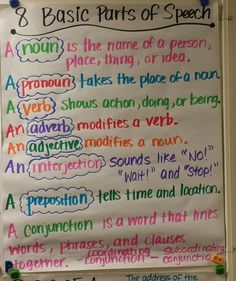 8 Basic Parts of Speech
A noun is the name of a person,
place, thing, or idea.
A pronoun takes the place of a noun.
A verb shows action, doing, or being.
An adverb modifies a verb.
An adjective modifies a noun.
An interjection sounds like "No!"
"Wait!" and "Stop!"
A preposition tells time and location.
A conjunction is a word that links
words, phrases, and clauses
together. - coordinating conjunction - subordinating conjunction
The address of the